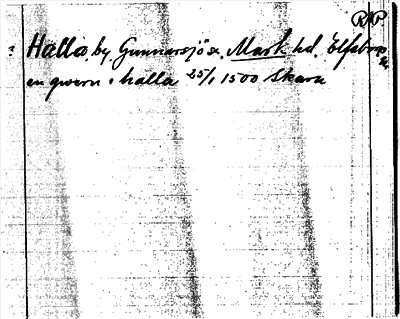 RAP
? Hallå, by Gunnarsjö sn. Mark hd. Elfsborgs l.
en qwern i halla 25/1 1500 Skara